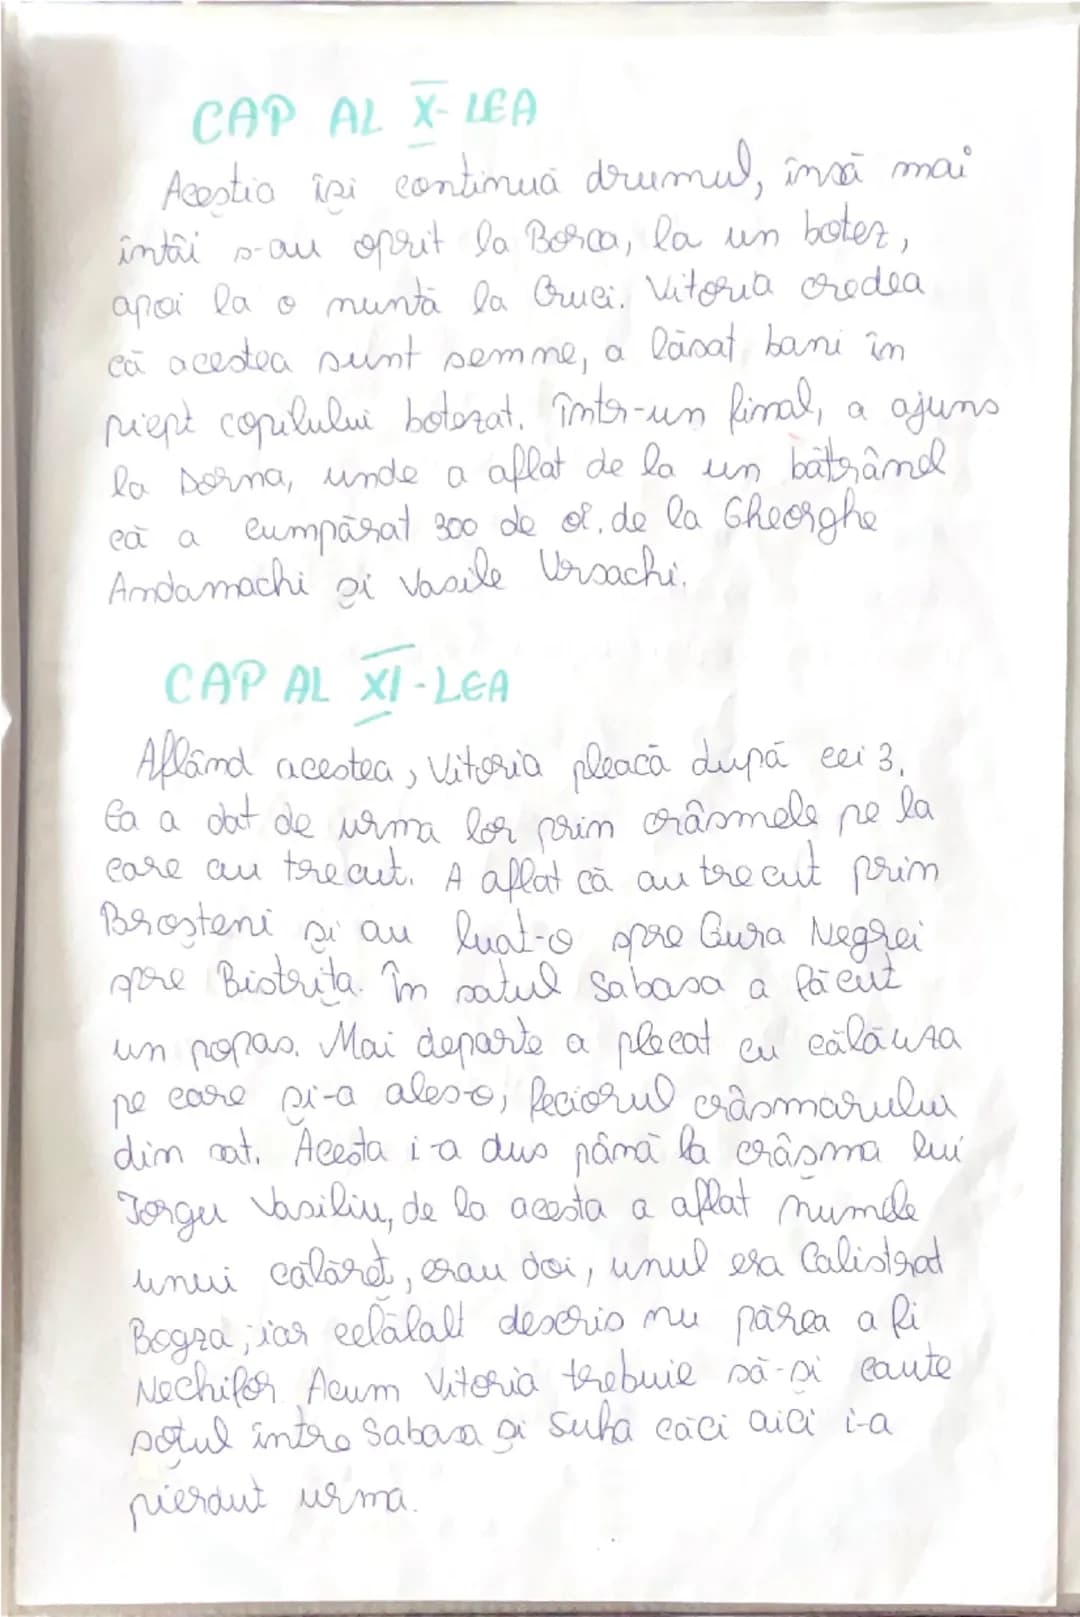 CAP AL X-LEA
Aceștia își continuă drumul, însă mai
întâi s-au oprit la Borca, la un botez,
apoi la o nuntă la Cruci. Vitoria credea
că acestea sunt semne, a lăsat bani în
piept copilului botezat. Într-un final, a ajuns
la Dorna, unde a aflat de la un bătrânel
că a cumpărat 300 de oi de la Gheorghe
Andamachi și Vasile Ursachi.
CAP AL XI-LEA
Aflând acestea, Vitoria pleacă după cei 3.
Ea a dat de urma lor prin crâsmele pe la
care au trecut. A aflat că au trecut prin
Broșteni și au luat-o spre Gura Negrei
spre Bistrița. În satul Sabasa a făcut
un popas. Mai departe a plecat cu călăuza
pe care și-a ales-o, feciorul crâsmarului
din sat. Acesta i-a dus până la crâsma lui
Iorgu Vasiliu, de la acesta a aflat numele
unui călăreț, erau doi, unul era Calistrat
Bogza, iar celălalt descris nu părea a fi
Nechifor. Acum Vitoria trebuie să-și caute
soțul între Sabasa și Suha căci aici i-a
pierdut urma.